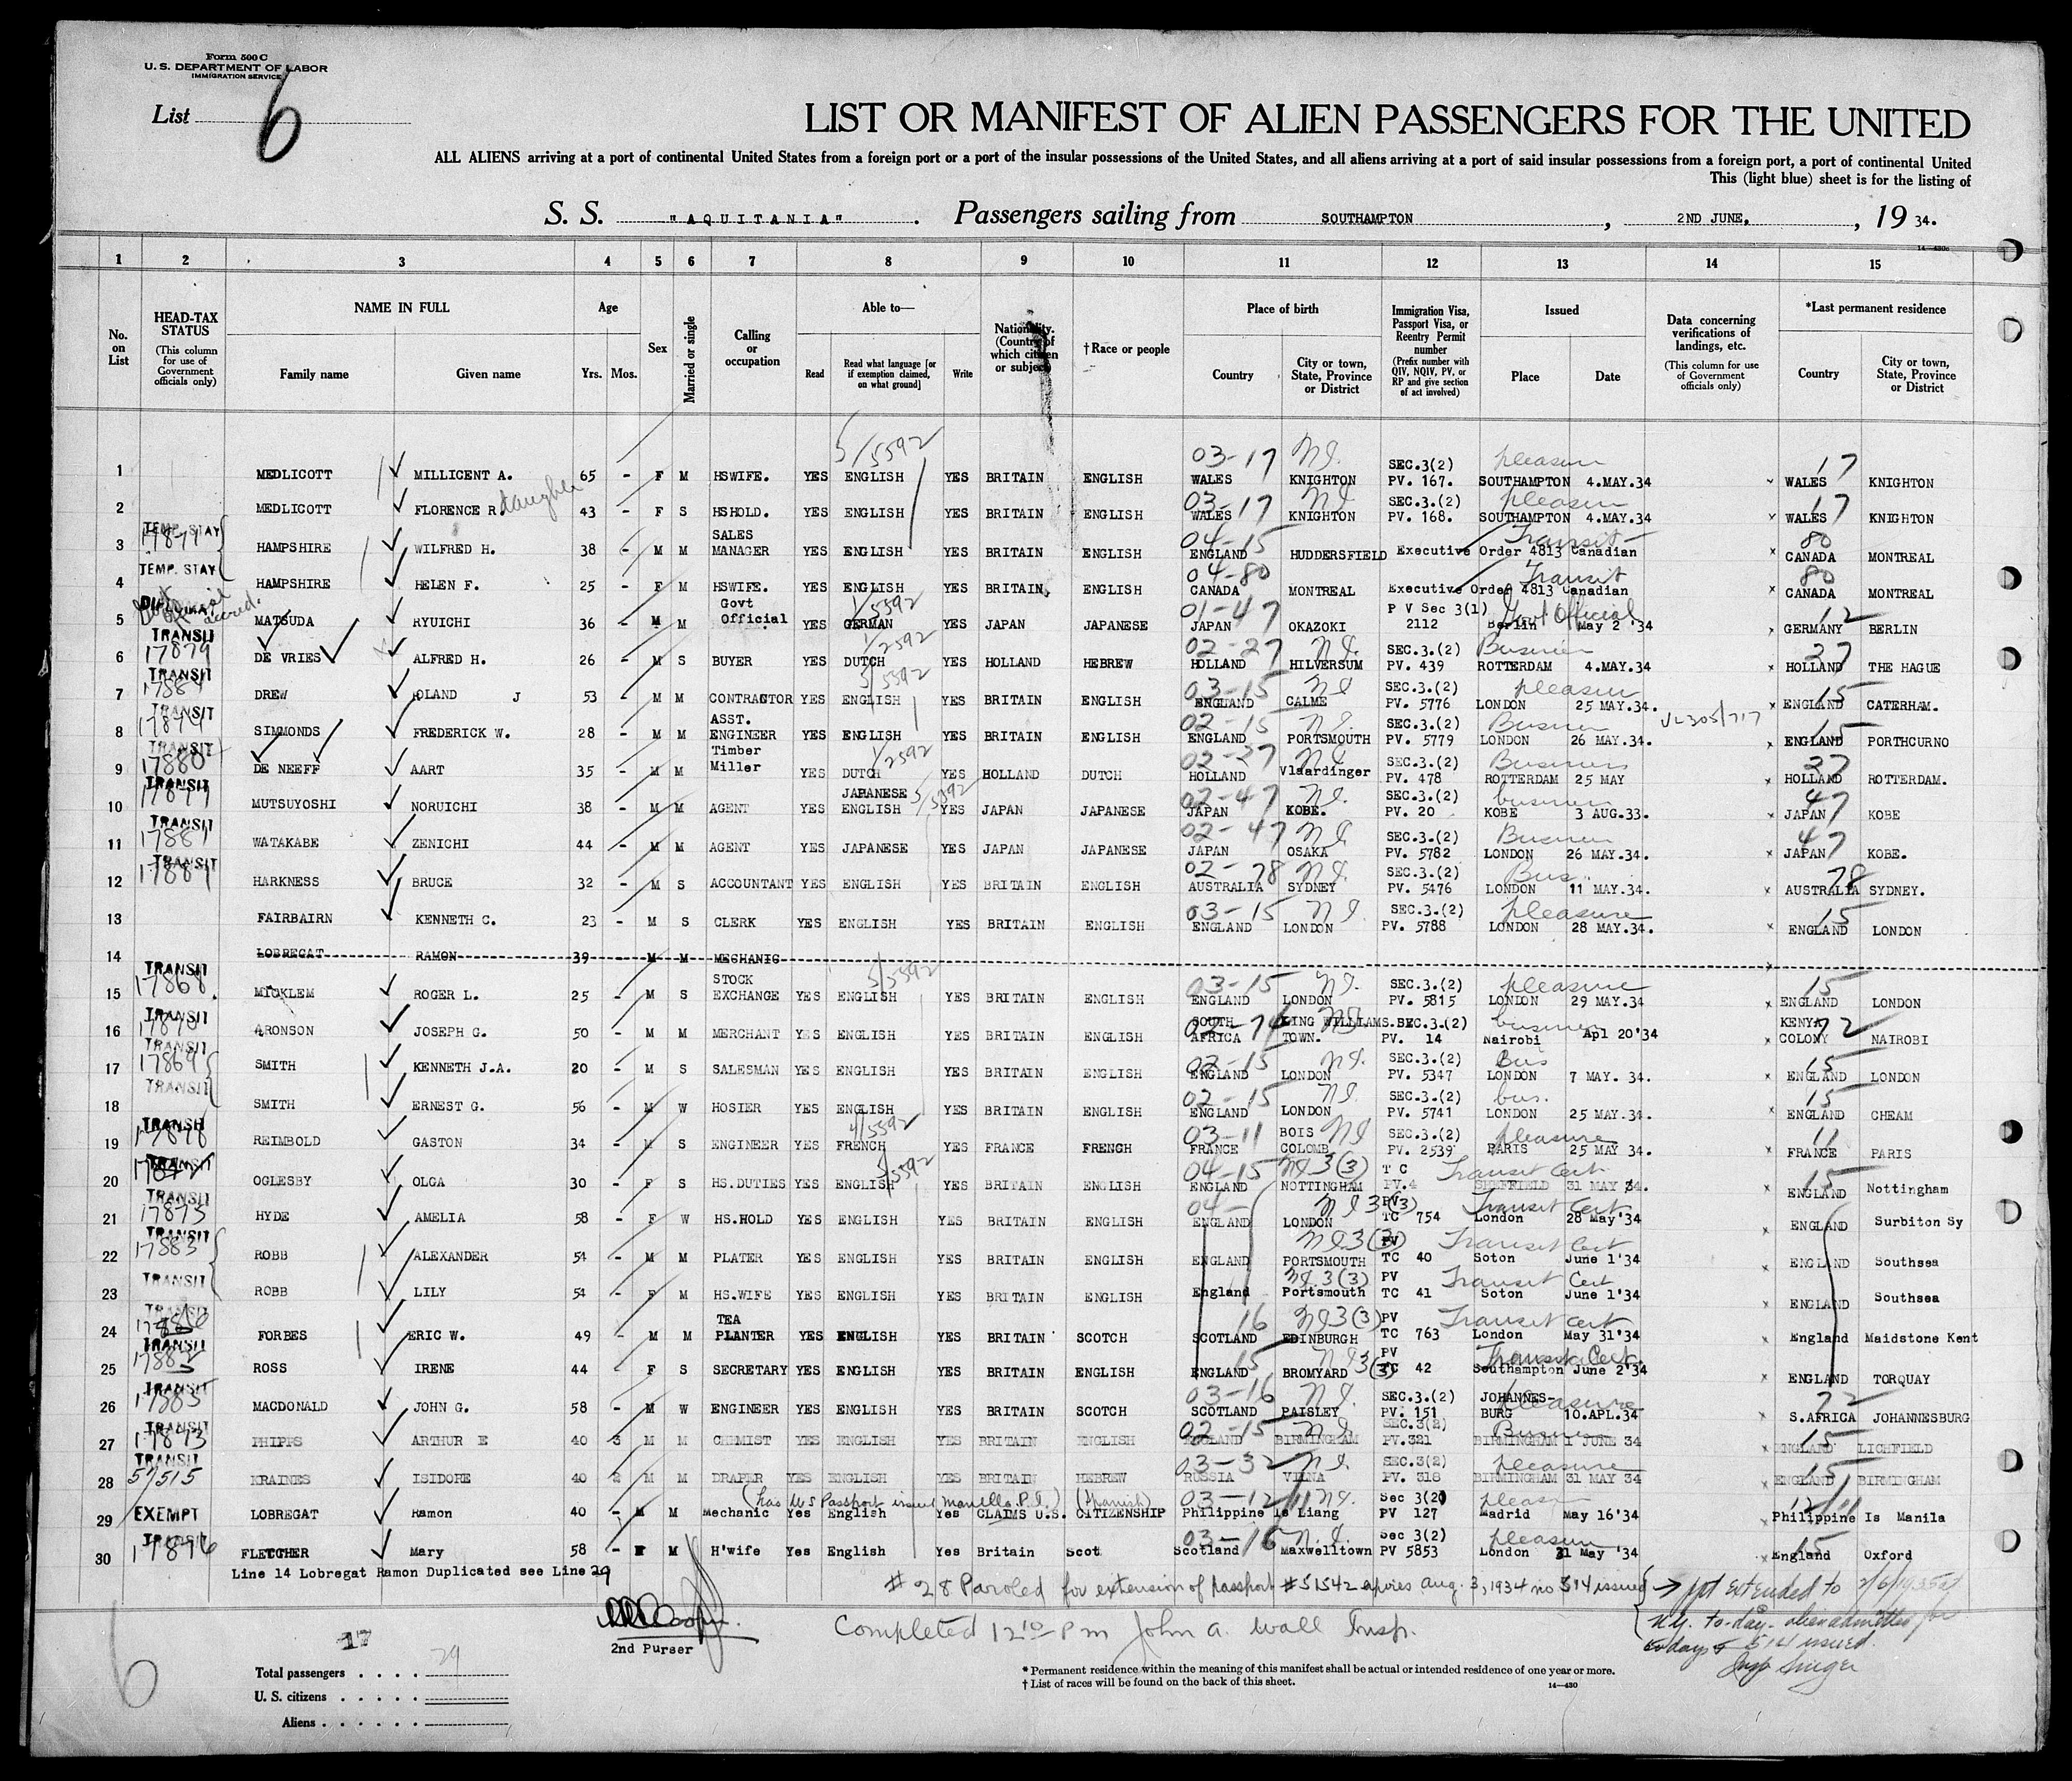 Form 500 C
U. S. DEPARTMENT OF LABOR
IMMIGRATION SERVICE
List 6
LIST OR MANIFEST OF ALIEN PASSENGERS FOR THE UNITED
ALL ALIENS arriving at a port of continental United States from a foreign port or a port of the insular possessions of the United States, and all aliens arriving at a port of said insular possessions from a foreign port, a port of continental United
This (light blue) sheet is for the listing of
S. S. "AQUITANIA". Passengers sailing from SOUTHAMPTON, 2ND JUNE, 19 34.
14—430c
1 2 3 4 5 6 7 8 9 10 11 12 13 14 15
No. on List
HEAD-TAX STATUS (This column for use of Government officials only)
NAME IN FULL Family name Given name
Age Yrs. Mos.
Sex
Married or single
Calling or occupation
Able to— Read Read what language [or if exemption claimed, on what ground] Write
Nationality. (Country of which citizen or subject)
†Race or people
Place of birth Country City or town, State, Province or District
Immigration Visa, Passport Visa, or Reentry Permit number (Prefix number with QIV, NQIV, PV, or RP and give section of act involved)
Issued Place Date
Data concerning verifications of landings, etc. (This column for use of Government officials only)
*Last permanent residence Country City or town, State, Province or District
5/5592 03-17 pleasure 17
1 MEDLICOTT MILLICENT A. 65 - F M HSWIFE. YES ENGLISH YES BRITAIN ENGLISH WALES KNIGHTON SEC.3(2) PV. 167. SOUTHAMPTON 4.MAY.34 WALES KNIGHTON
daughter 03-17 pleasure 17
2 MEDLICOTT FLORENCE R. 43 - F S HSHOLD. YES ENGLISH YES BRITAIN ENGLISH WALES KNIGHTON SEC.3.(2) PV. 168. SOUTHAMPTON 4.MAY.34 WALES KNIGHTON
TEMP. STAY 04-15 Transit 80
3 HAMPSHIRE WILFRED H. 38 - M M SALES MANAGER YES ENGLISH YES BRITAIN ENGLISH ENGLAND HUDDERSFIELD Executive Order 4813 Canadian CANADA MONTREAL
TEMP. STAY 04-80 Transit 80
4 HAMPSHIRE HELEN F. 25 - F M HSWIFE. YES ENGLISH YES BRITAIN ENGLISH CANADA MONTREAL Executive Order 4813 Canadian CANADA MONTREAL
1/5592 01-47 Govt Official 12
5 MATSUDA RYUICHI 36 - M M Govt Official YES GERMAN YES JAPAN JAPANESE JAPAN OKAZOKI P V Sec 3(1) 2112 Berlin May 2 '34 GERMANY BERLIN
TRANSIT 17879 1/2592 02-27 Business 27
6 DE VRIES ALFRED H. 26 - M S BUYER YES DUTCH YES HOLLAND HEBREW HOLLAND HILVERSUM SEC.3.(2) PV. 439 ROTTERDAM 4.MAY.34 HOLLAND THE HAGUE
TRANSIT 5592 03-15 pleasure 15
7 DREW OLAND J 53 - M M CONTRACTOR YES ENGLISH YES BRITAIN ENGLISH ENGLAND CALME SEC.3.(2) PV. 5776 LONDON 25 MAY.34. ENGLAND CATERHAM.
TRANSIT 17874 02-15 15
8 SIMMONDS FREDERICK W. 28 - M M ASST. ENGINEER YES ENGLISH YES BRITAIN ENGLISH ENGLAND PORTSMOUTH SEC.3.(2) PV. 5779 LONDON 26 MAY.34. ENGLAND PORTHCURNO
TRANSIT 17880 1/2592 02-27 Business 27
9 DE NEEFF AART 35 - M M Timber Miller YES DUTCH YES HOLLAND DUTCH HOLLAND Vlaardinger SEC.3.(2) PV. 478 ROTTERDAM 25 MAY HOLLAND ROTTERDAM.
TRANSIT 17877 5/5592 02-47 business 47
10 MUTSUYOSHI NORUICHI 38 - M M AGENT YES JAPANESE ENGLISH YES JAPAN JAPANESE JAPAN KOBE. SEC.3.(2) PV. 20 KOBE 3 AUG.33. JAPAN KOBE
TRANSIT 17881 02-47 Business 47
11 WATAKABE ZENICHI 44 - M M AGENT YES JAPANESE YES JAPAN JAPANESE JAPAN OSAKA SEC.3.(2) PV. 5782 LONDON 26 MAY.34. JAPAN KOBE.
TRANSIT 02-78 Bus. 78
12 HARKNESS BRUCE 32 - M S ACCOUNTANT YES ENGLISH YES BRITAIN ENGLISH AUSTRALIA SYDNEY SEC.3.(2) PV. 5476 LONDON 11 MAY.34. AUSTRALIA SYDNEY.
03-15 pleasure 15
13 FAIRBAIRN KENNETH C. 23 - M S CLERK YES ENGLISH YES BRITAIN ENGLISH ENGLAND LONDON SEC.3.(2) PV. 5788 LONDON 28 MAY.34. ENGLAND LONDON
14 LOBREGAT RAMON 39 - M M MECHANIC
TRANSIT 17868 5/5592 03-15 pleasure 15
15 MICKLEM ROGER L. 25 - M S STOCK EXCHANGE YES ENGLISH YES BRITAIN ENGLISH ENGLAND LONDON SEC.3.(2) PV. 5815 LONDON 29 MAY.34 ENGLAND LONDON
TRANSIT 17870 business 72
16 ARONSON JOSEPH G. 50 - M M MERCHANT YES ENGLISH YES BRITAIN ENGLISH SOUTH AFRICA KING WILLIAMS TOWN. SEC.3.(2) PV. 14 Nairobi Apl 20'34 KENYA COLONY NAIROBI
TRANSIT 17869 02-15 Bus 15
17 SMITH KENNETH J.A. 20 - M S SALESMAN YES ENGLISH YES BRITAIN ENGLISH ENGLAND LONDON SEC.3.(2) PV. 5347 LONDON 7 MAY. 34. ENGLAND LONDON
TRANSIT 02-15 bus. 15
18 SMITH ERNEST G. 56 - M W HOSIER YES ENGLISH YES BRITAIN ENGLISH ENGLAND LONDON SEC.3.(2) PV. 5741 LONDON 25 MAY.34. ENGLAND CHEAM
TRANSIT 4/5592 03-11 pleasure 11
19 REIMBOLD GASTON 34 - M S ENGINEER YES FRENCH YES FRANCE FRENCH FRANCE BOIS COLOMB SEC.3.(2) PV. 2539 PARIS 25 MAY 34. FRANCE PARIS
TRANSIT 17872 5592 04-15 3(3) Transit Cert 15
20 OGLESBY OLGA 30 - F S HS.DUTIES YES ENGLISH YES BRITAIN ENGLISH ENGLAND NOTTINGHAM T C PV.4 SHEFFIELD 31 MAY 34. ENGLAND Nottingham
TRANSIT 17875 04- 3(3) Transit Cert
21 HYDE AMELIA 58 - F W HS.HOLD YES ENGLISH YES BRITAIN ENGLISH ENGLAND LONDON PV TC 754 London 28 May'34 ENGLAND Surbiton Sy
TRANSIT 17883 3(3) Transit Cert
22 ROBB ALEXANDER 54 - M M PLATER YES ENGLISH YES BRITAIN ENGLISH ENGLAND PORTSMOUTH PV TC 40 Soton June 1'34 ENGLAND Southsea
TRANSIT 3(3) Transit Cert
23 ROBB LILY 54 - F M HS.WIFE YES ENGLISH YES BRITAIN ENGLISH England Portsmouth PV TC 41 Soton June 1'34 ENGLAND Southsea
16 3(3) Transit Cert
24 FORBES ERIC W. 49 - M M TEA PLANTER YES ENGLISH YES BRITAIN SCOTCH SCOTLAND EDINBURGH PV TC 763 London May 31'34 England Maidstone Kent
TRANSIT 17882 15 3(3) Transit Cert.
25 ROSS IRENE 44 - F S SECRETARY YES ENGLISH YES BRITAIN ENGLISH ENGLAND BROMYARD PV TC 42 Southampton June 2'34 ENGLAND TORQUAY
TRANSIT 17885 03-16 pleasure 72
26 MACDONALD JOHN G. 58 - M W ENGINEER YES ENGLISH YES BRITAIN SCOTCH SCOTLAND PAISLEY SEC.3.(2) PV. 151 JOHANNES- BURG 10.APL.34 S.AFRICA JOHANNESBURG
TRANSIT 17873 02-15 Business 15
27 PHIPPS ARTHUR E 40 3 M M CHEMIST YES ENGLISH YES BRITAIN ENGLISH ENGLAND BIRMINGHAM SEC.3(2) PV.321 BIRMINGHAM 1 JUNE 34 ENGLAND LICHFIELD
TRANSIT 57515 03-32 pleasure 15
28 KRAINES ISIDORE 40 2 M M DRAPER YES ENGLISH YES BRITAIN HEBREW RUSSIA VILNA SEC.3(2) PV. 318 BIRMINGHAM 31 MAY 34 ENGLAND BIRMINGHAM
(has US Passport issued Manella. P.I.) (Spanish) 03-12
29 EXEMPT LOBREGAT Ramon 40 - M M Mechanic Yes English Yes CLAIMS U.S. CITIZENSHIP Philippine Is Liang Sec 3(2) PV 127 Madrid May 16'34 Philippine Is Manila
TRANSIT 17876 03-16 pleasure 15
30 FLETCHER Mary 58 - F M H'wife Yes English Yes Britain Scot Scotland Maxwelltown Sec 3(2) PV 5853 London 31 May '34 England Oxford
Line 14 Lobregat Ramon Duplicated see Line 29
# 28 Paroled for extension of passport #51542 expires Aug. 3, 1934 no 514 issued → ppt extended to
N.Y. to-day - alien admitted for
60 days 514 issued.
Insp Singer
Completed 12 10 PM John A. Wall Insp.
2nd Purser
17
6
Total passengers . . . . 29
U. S. citizens . . . . .
Aliens . . . . . .
* Permanent residence within the meaning of this manifest shall be actual or intended residence of one year or more.
† List of races will be found on the back of this sheet.
14—430